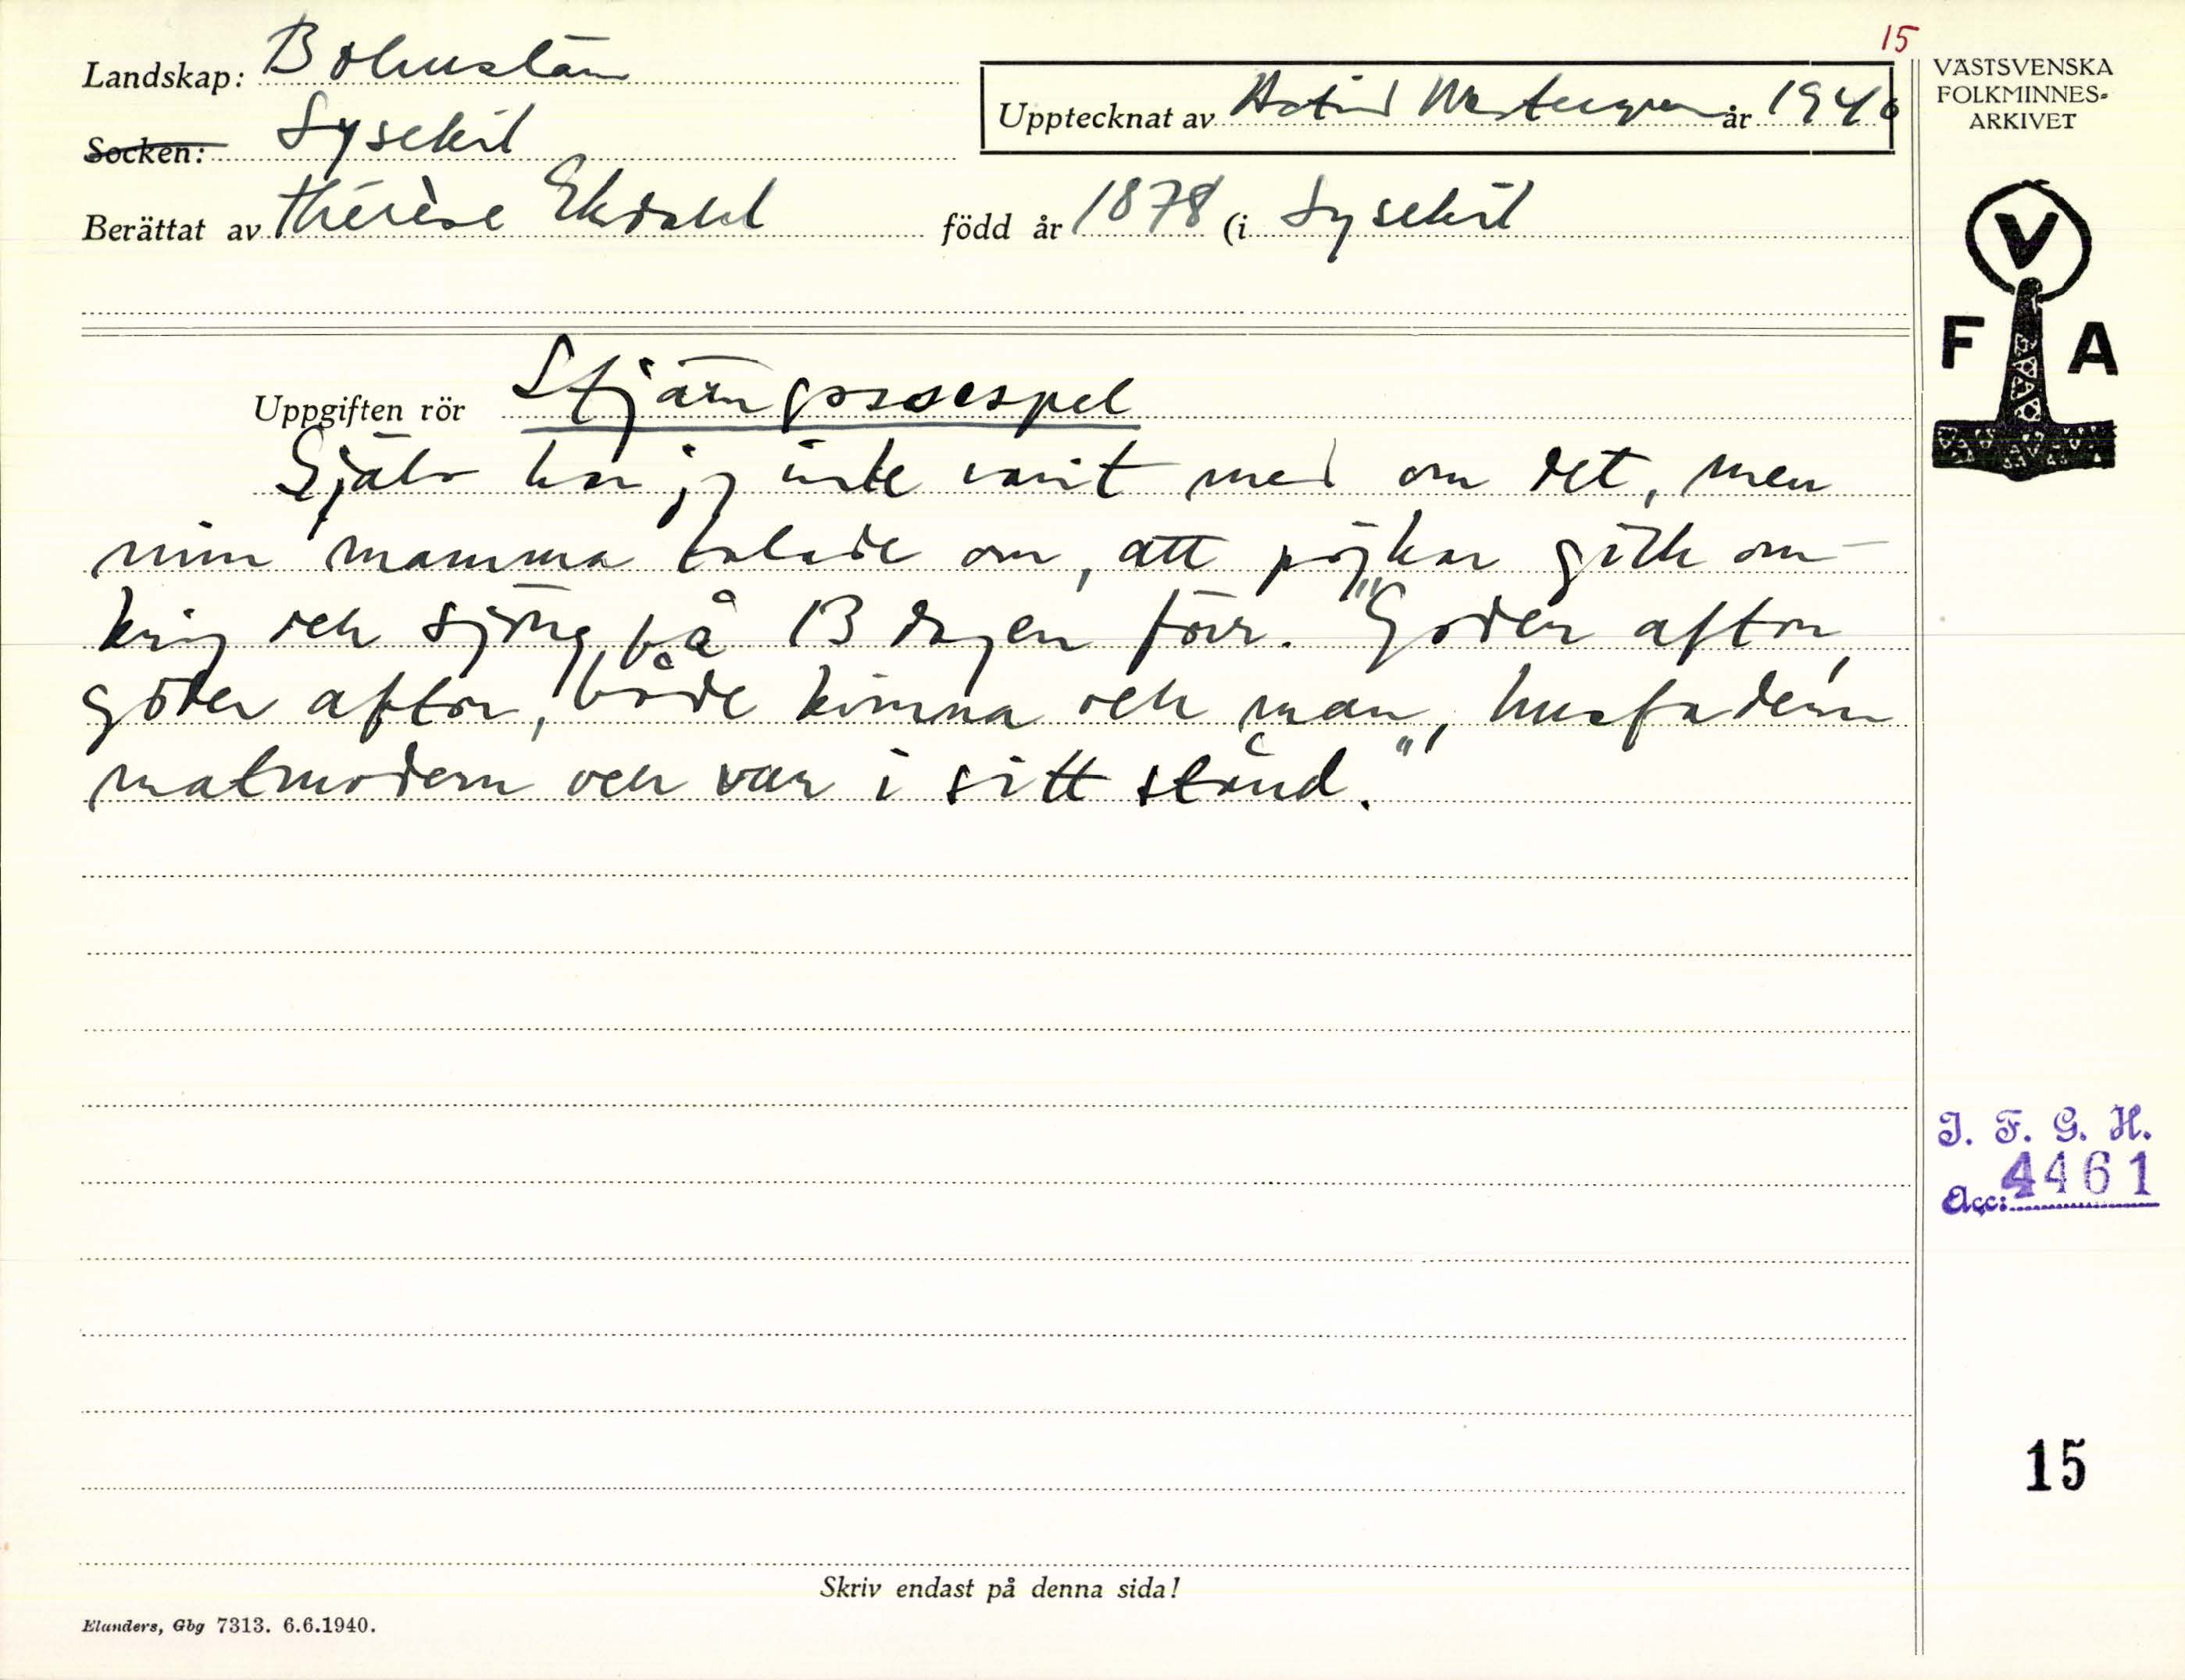 15
Landskap: Bohuslän
Upptecknat av Astrid Westergren år 1940
Socken: Lysekil
Berättat av Thérèse Ekdahl född år 1878 (i Lysekil
VÄSTSVENSKA
FOLKMINNES-
ARKIVET
V
F A
Uppgiften rör Stjärngossespel
Själv har jag inte varit med om det, men
min mamma talade om, att pojkar gick om-
kring och sjöng på 13 dagen förr. "Goder afton,
goder afton, både kvinna och man, husfadern
matmodern och var i sitt stånd."
I. F. G. H.
Acc: 4461
15
Skriv endast på denna sida!
Elanders, Gbg 7313. 6.6.1940.